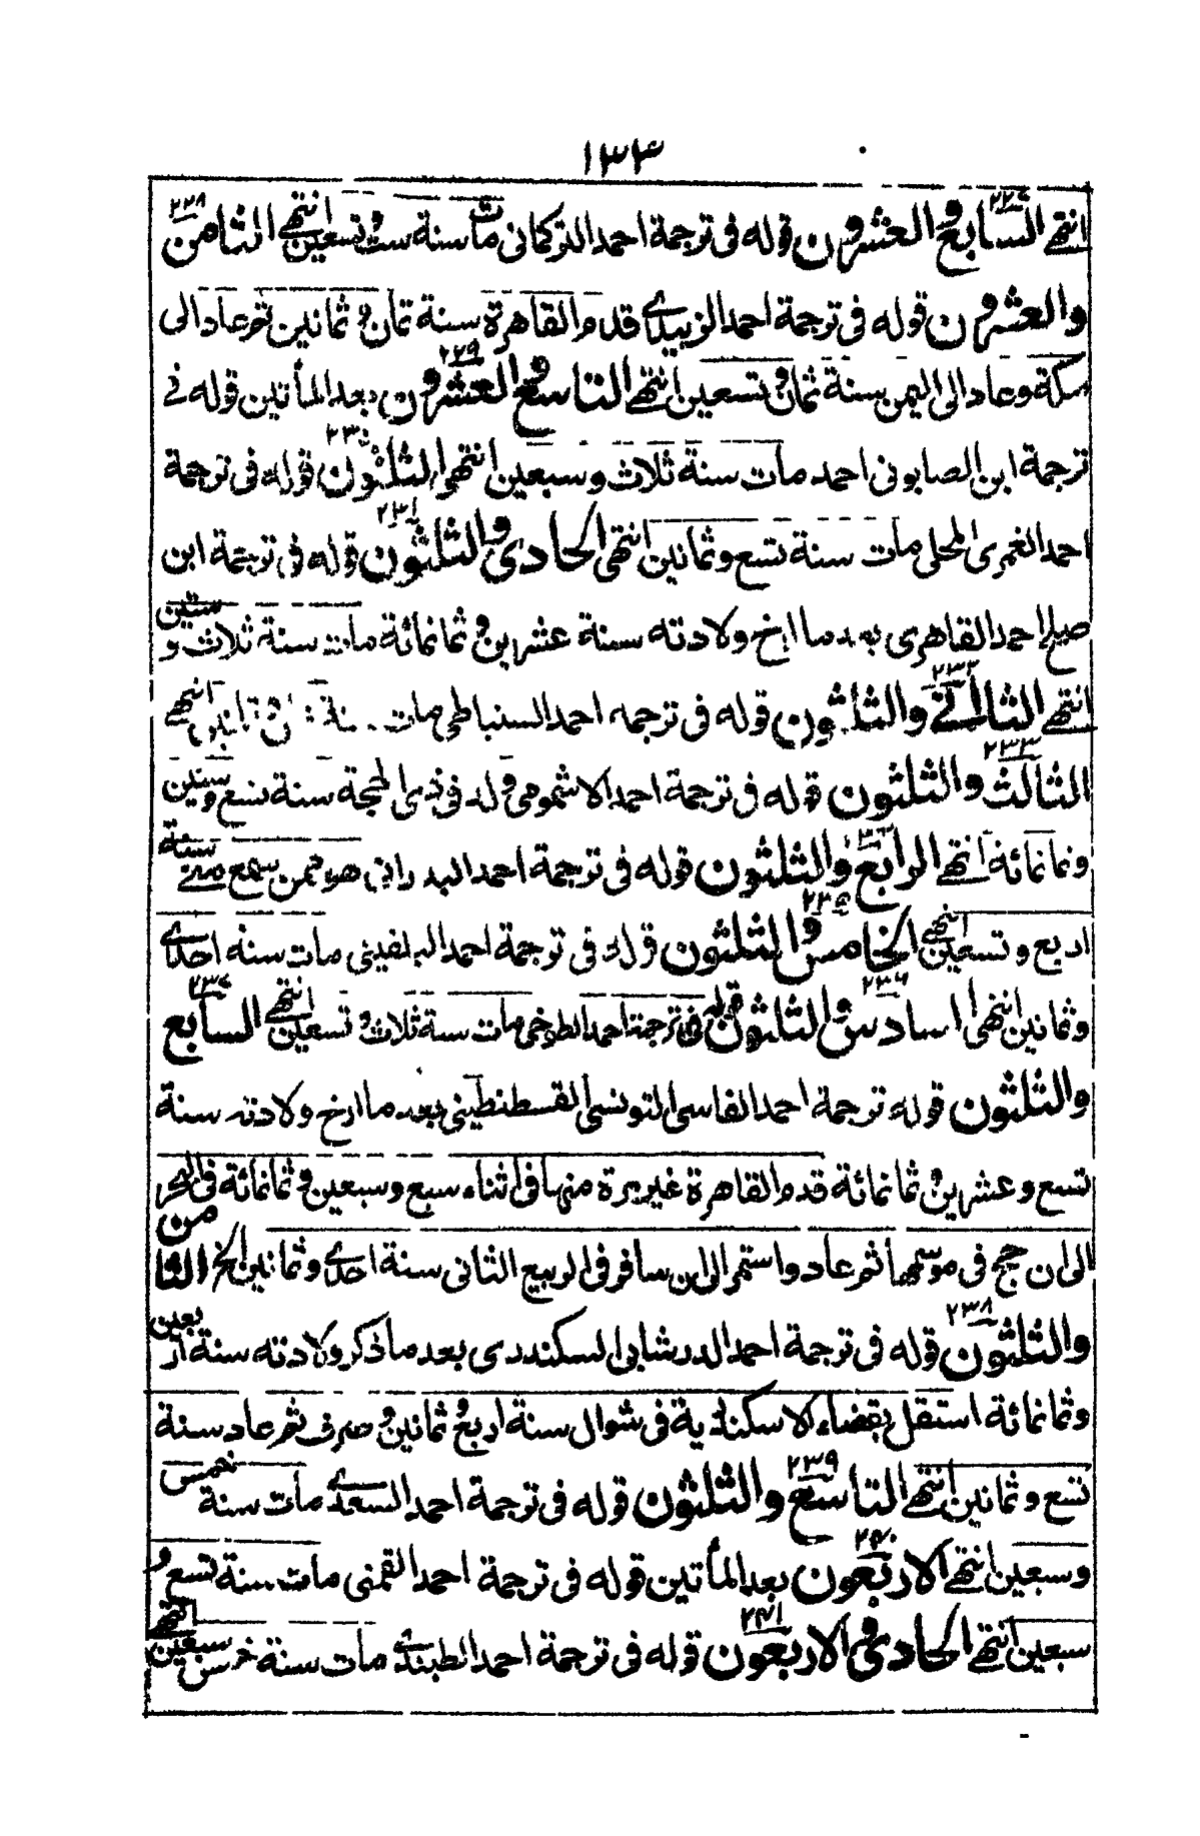 ١٣٣
انتهى السابع والعشرون قوله فى ترجمة احمد التركمانى مات سنة ست وتسعين انتهى الثامن
والعشرون قوله فى ترجمة احمد الزبيدى قدم القاهرة سنة ثمان و ثمانين ثم عاد الى
مكة وعاد الى اليمن سنة ثمان و تسعين انتهى التاسع والعشرون بعد المأتين قوله فى
ترجمة ابن الصابونى احمد مات سنة ثلاث وسبعين انتهى الثلثون قوله فى ترجمة
احمد الغمرى المحلى مات سنة تسع وثمانين انتهى الحادى والثلثون قوله فى ترجمة ابن
صلح احمد القاهرى بعد ما ارخ ولادته سنة عشرين و ثمانمائة مات سنة ثلاث و ستين
انتهى الثانى والثلثون قوله فى ترجمه احمد السنباطى مات سنة انتهى
الثالث والثلثون قوله فى ترجمة احمد الاشمومى ولد فى ذى الحجة سنة تسع وستين
وثمانمائة انتهى الرابع والثلثون قوله فى ترجمة احمد البدرانى هو ممن سمع منى سنة
اربع و تسعين انتهى الخامس والثلثون قوله فى ترجمة احمد البلقينى مات سنة احدى
وثمانين انتهى السادس والثلثون قوله فى ترجمة احمد الطوخى مات سنة ثلاث و تسعين انتهى السابع
والثلثون قوله ترجمة احمد الفاسى التونسى القسطنطينى بعد ما ارخ ولادته سنة
تسع وعشرين و ثمانمائة قدم القاهرة غير مرة منها فى اثناء سبع وسبعين و ثمانمائة فى البحر
الى ان حج فى موسمها ثم عاد واستمر الى ان سافر فى الربيع الثانى سنة احدى وثمانين الخ الثامن
والثلثون قوله فى ترجمة احمد الدرشابى السكندرى بعد ما ذكر ولادته سنة اربعين
وثمانمائة استقل بقضاء الاسكندرية فى شوال سنة اربع و ثمانين و صرف ثم عاد سنة
تسع وثمانين انتهى التاسع والثلثون قوله فى ترجمة احمد السعدى مات سنة خمس
وسبعين انتهى الاربعون بعد المأتين قوله فى ترجمة احمد القمنى مات سنة تسع و
سبعين انتهى الحادى والاربعون قوله فى ترجمة احمد الطبندى مات سنة خمس سبعين انتهى
٢٢٧
٢٢٨
٢٢٩
٢٣٠
٢٣١
٢٣٢
٢٣٣
٢٣٥
٢٣٦
٢٣٧
٢٣٨
٢٣٩
٢٤٠
٢٤١